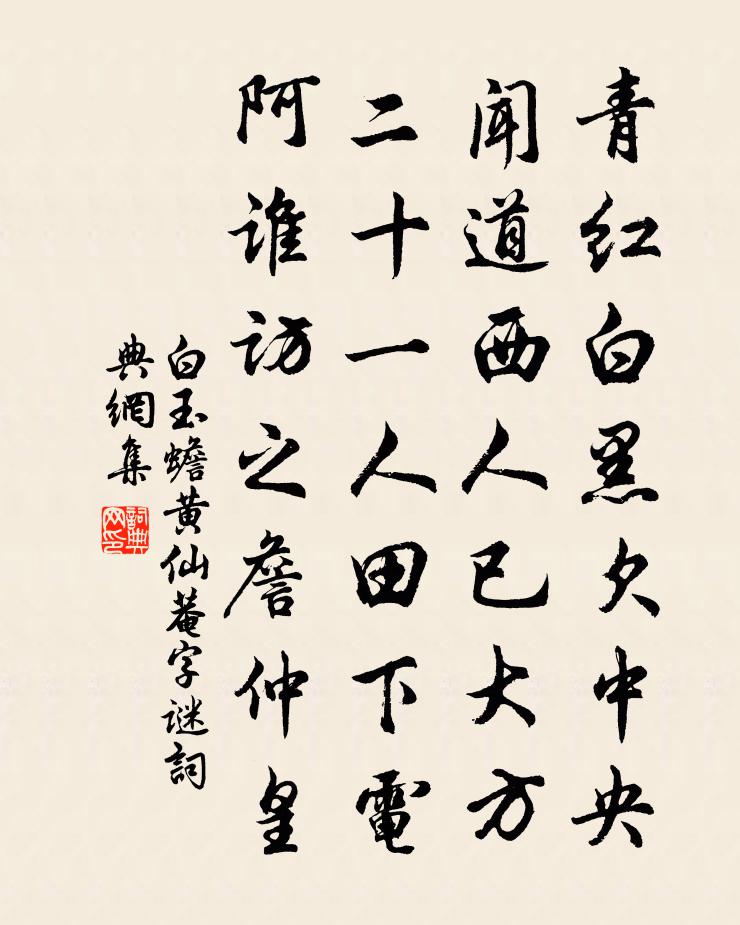 青红白黑欠中央
闻道西人已大方
二十一人田下電
阿谁访之詹仲皇
白玉蟾黄仙菴字谜詞
典網集
詞典
网印